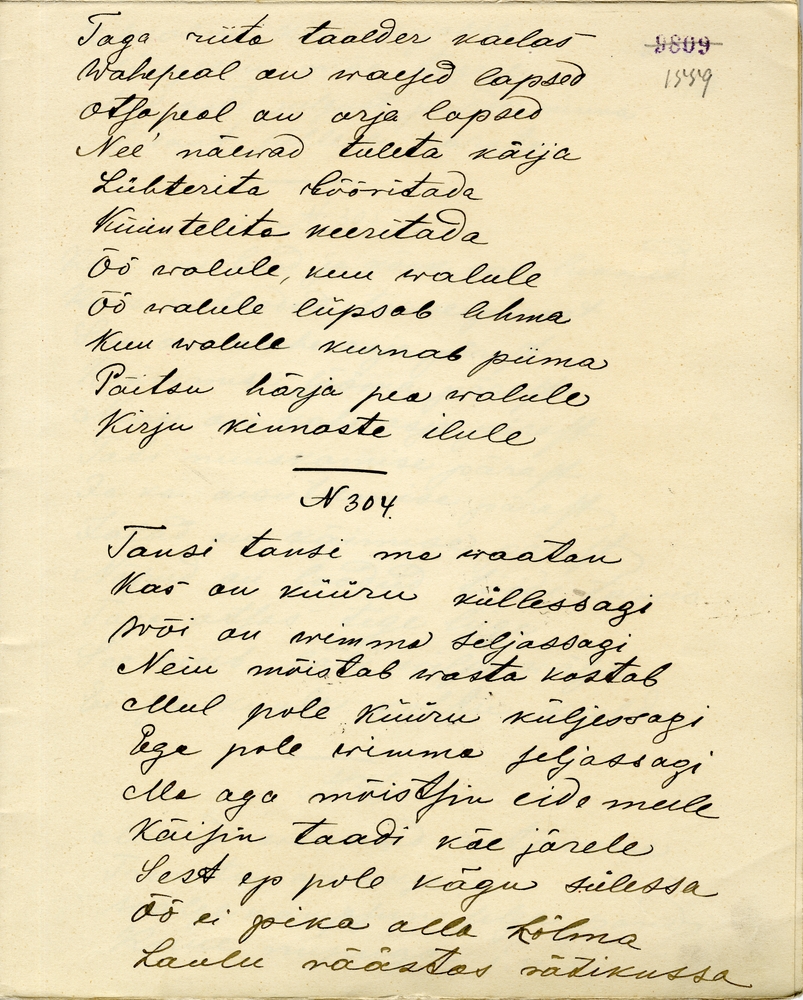 9809
1559
Taga riita taalder kaelas
Wahepeal on waesed lapsed
Otsapeal on orja lapsed
Nee näewad tuleta käija
Lühterita wõõritada
Küüntelita keeritada
Öö walule, kuu walule
Öö walule lüpsab lehma
Kuu walule kurnab piima
Päitsu härja pea walule
Kirju kinnaste ilule
N 304.
Tansi tansi ma waatan
Kas on küüru küllessagi
Wõi on wimma seljassagi
Neiu mõistab wasta kostab
Mul pole küüru küljessagi
Ega pole wimma seljassagi
Ma aga mõistsin eide meele
Käisin taadi käe järele
Sest ep pole kägu sülessa
Öö ei pika alla hõlma
Laulu räästas rätikussa